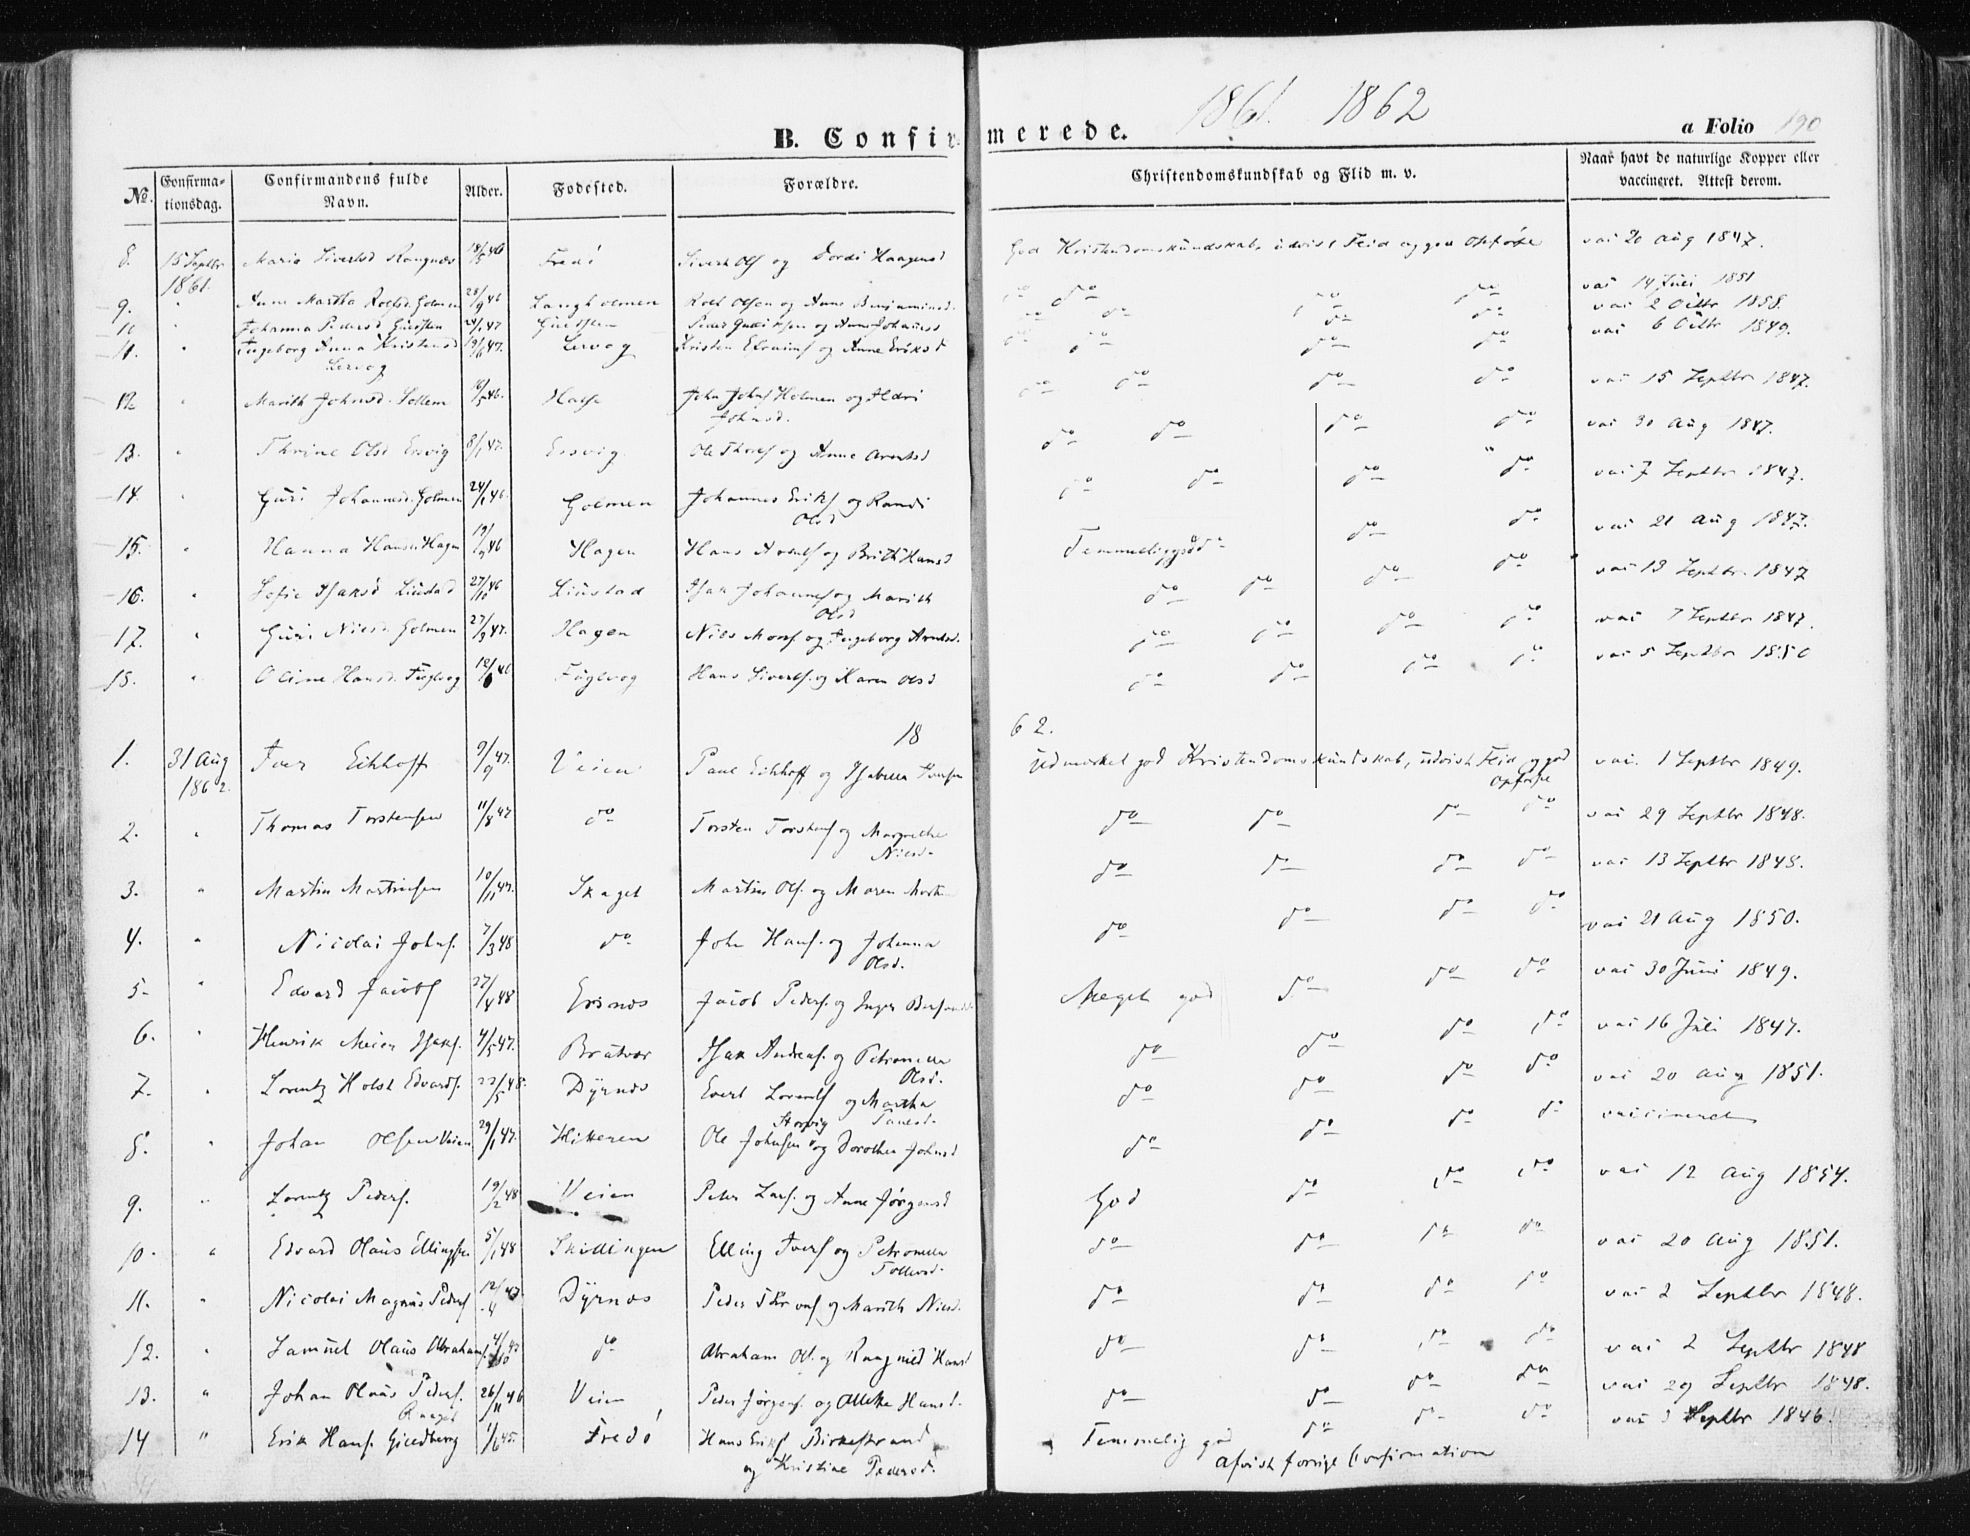 1861. 1862
B. Confirmerede.
a Folio 190
No. Confirmationsdag. Confirmandens fulde Navn. Alder. Fødested. Forældre. Christendomskundskab og Flid m. v. Naar havt de naturlige Kopper eller vaccineret. Attest derom.
8. 15 Septbr 1861. Maria Sivertsd Rangnæs 18/5 46 Fredø Sivert Ols og Dordi Haagensd God Kristendomskundskab, udvist Flid og god Opførsel vac 20 Aug 1847.
9. " Anne Martha Rolfsd. Holmen 28/9 46 Langholmen Rolf Olsen og Anne Benjaminsd. do do do do vac 14 Juli 1851
10 " Johanna Pedersd 24/1 47 Peder og Anne Johansd do do do do vac 2 Octbr 1858.
11. " Ingeborg Anna Kristensd Lervog 19/6 47. Lervog Kristen og Anne Eriksd do do do do vac 6 Octbr 1849.
12 " Marith Johnsd. Sollem 16/5 46. Halse John Johns Holmen og Johnsd. do do do do vac 15 Septbr 1847.
13. " Thrine Olsd Ersvig 8/1 47. Ersvig Ole Thors og Anne Arentsd do do do do vac 30 Aug 1847.
14. " Guri Johannesd. Holmen 24/1 46. Holmen Johannes Eriks og Randi Olsd do do do do vac 7 Septbr 1847.
15. " Hanna Hansd. Hagen 19/9 46 Hagen Hans og Brith Hansd Temmelig god do do vac 21 Aug 1847.
16. " Sofie Isaksd Liustad 27/10 46 Liustad Isak Johannes og Marith Olsd do do do do vac 13 Septbr. 1847
17. " Guri Nilsd. Holmen 27/9 47. Hagen Nils Mons og Ingeborg Arntsd. do do do do vac 7 Septbr 1847.
18. " Oline Hansd. Fuglvog 12/6 46 Fuglvog Hans Siverts. og Karen Olsd do do do do vac 5 Septbr 1850
1862.
1. 31 Aug 1862. Iver Eikhoff 9/9 47. Veien Paul Eikhoff og Isabella Iversen Udmærket god Kristendomskundskab, udvist Flid og god Opførsel vac. 1 Septbr 1849.
2. " Thomas Torstensen 11/8 47 do Torsten Torstens og Margrethe Nilsd. do do do do vac 29 Septbr 1848.
3. " Martin Martinsen 10/11 47. Skaget Martin Ols. og Maren do do do do vac 13 Septbr 1848.
4. " Nicolai Johns. 7/3 48 do John Hans. og Johanna Olsd. do do do do vac 21 Aug 1850.
5. " Edvard Jacobs 27/4 48 Ersnæs Jacob Peders. og Inger Meget god do do do vac 30 Juni 1849.
6. " Henrik Meier Isaks. 4/5 47. Bratvær Isak Andreas. og Petronella Olsd. do do do do vac 16 Juli 1847.
7. " Lorentz Holst Edvards. 22/5 48. Dyrnæs Evert Lorents og Martha do do do do vac 20 Aug 1851.
8. " Johan Olsen Veien 29/1 47. Hikkeren Ole Johnsen Storvig og Dorothea Johnsd do do do do vaccineret
9. " Lorentz Peders. 19/2 48 Veien Peter Lars. og Anne Jørgensd God do do do vac 12 Aug 1854.
10. " Edvard Olaus Ellingsen 5/1 48 Skillingen Elling Ivers og Petronella Tollevsd. do do do do vac 20 Aug 1851.
11. " Nicolai Magnus Peders 12/4 47 Dyrnæs Peder og Marith Nilsd. do do do do vac 2 Septbr 1848.
12. " Samuel Olaus Abrahams. 4/10 47 do Abraham Ols. og Raagnild Hansd do do do do vac 2 Septbr 1848
13. " Johan Olaus Peders. 26/11 46 Veien Peder Jørgens. og Hansd. do do do do vac 29 Septbr 1848.
14 " Erik Hans. 1/6 45. Fredø Hans Eriks Birkestrand og Kristine Pedersd. Temmelig god do do do vac 3 Septbr 1846.
afvist forrige Confirmation